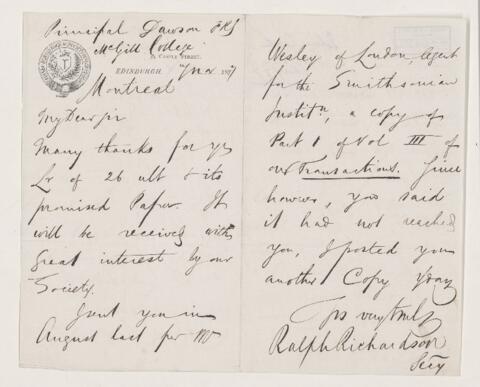 Principal Dawson FRS
McGill College
CASTLE STREET.
EDINBURGH
Montreal
My Dear Sir
Many thanks for yr
Lr of 26 ult & its
promised Paper. It
will be received with
great interest by our
Society.
Sent you in
August last per Mr
Wesley of London, Agent
for the Smithsonian
Institn, a copy of
Part 1 of Vol III of
our Transactions. Since
however, you said
it had not reached
you, I posted you
another Copy yday
Yrs very truly
Ralph Richardson
Secy